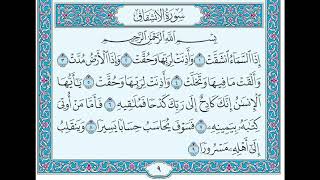 سورة الانشقاق
بِسْمِ ٱللَّهِ ٱلرَّحْمَٰنِ ٱلرَّحِيمِ
إِذَا ٱلسَّمَآءُ ٱنشَقَّتْ ١ وَأَذِنَتْ لِرَبِّهَا وَحُقَّتْ ٢ وَإِذَا ٱلْأَرْضُ مُدَّتْ ٣
وَأَلْقَتْ مَا فِيهَا وَتَخَلَّتْ ٤ وَأَذِنَتْ لِرَبِّهَا وَحُقَّتْ ٥ يَٰٓأَيُّهَا
ٱلْإِنسَٰنُ إِنَّكَ كَادِحٌ إِلَىٰ رَبِّكَ كَدْحًا فَمُلَٰقِيهِ ٦ فَأَمَّا مَنْ أُوتِىَ
كِتَٰبَهُۥ بِيَمِينِهِۦ ٧ فَسَوْفَ يُحَاسَبُ حِسَابًا يَسِيرًا ٨ وَيَنقَلِبُ
إِلَىٰٓ أَهْلِهِۦ مَسْرُورًا ٩
٩